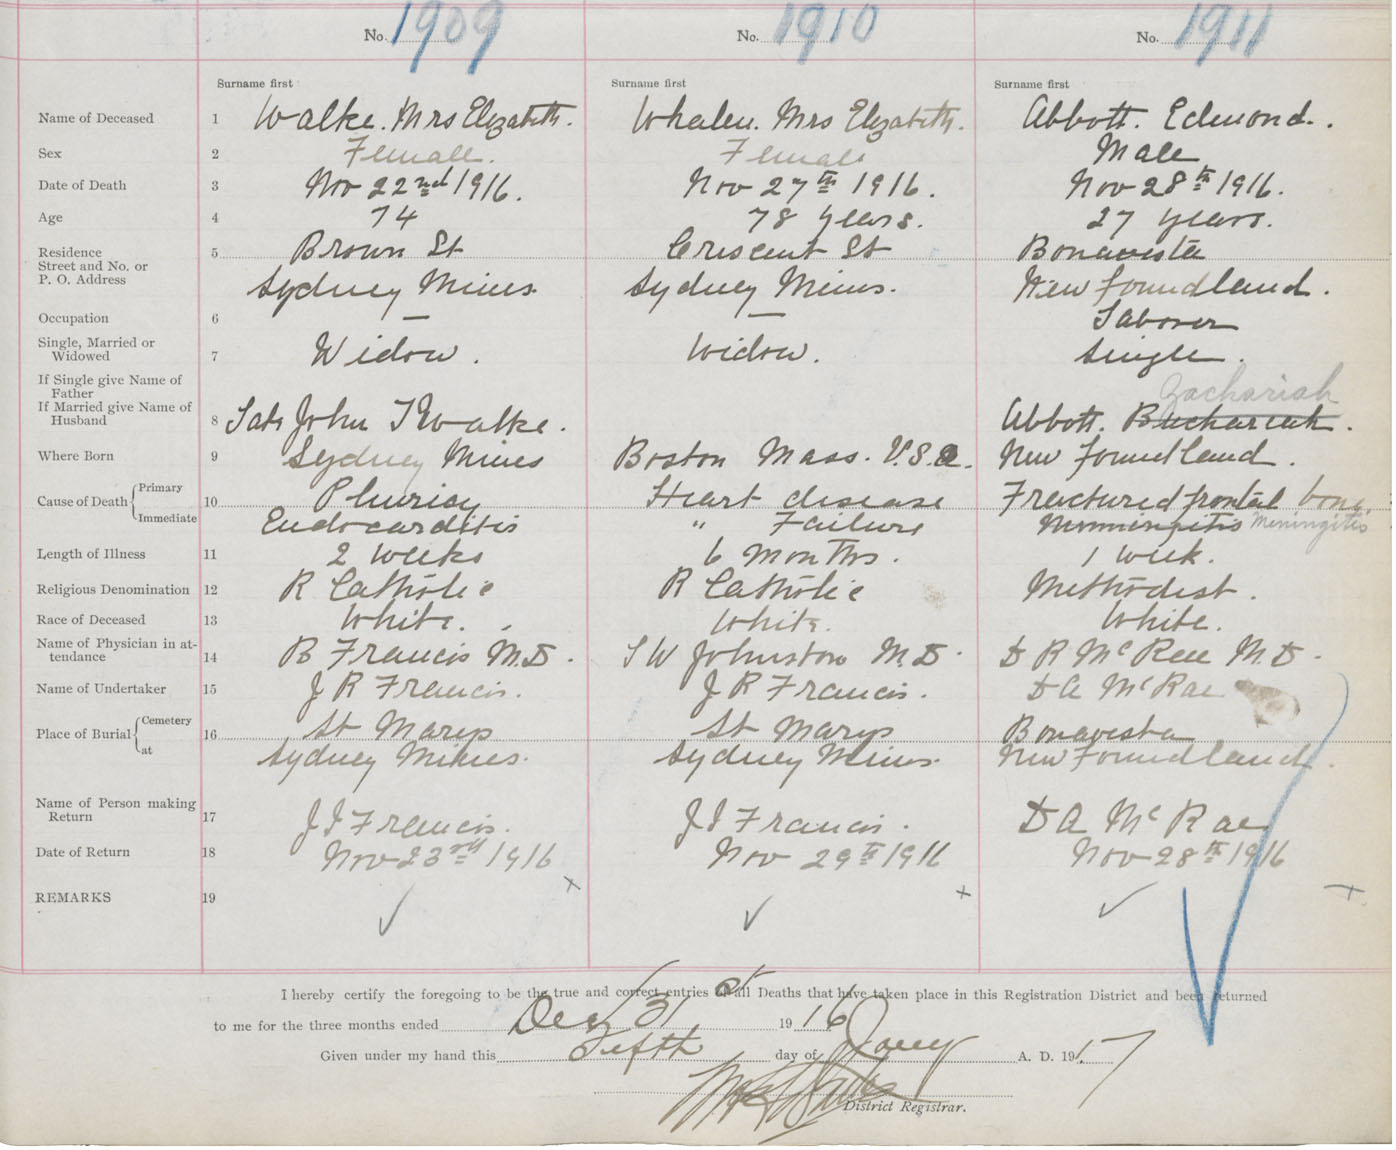 No. 1909 No. 1910 No. 1911
Surname first Surname first Surname first
Name of Deceased 1 Walke. Mrs Elizabeth. Whalen. Mrs Elizabeth. Abbott. Edmond.
Sex 2 Female. Female Male
Date of Death 3 Nov 22nd 1916. Nov 27th 1916. Nov 28th 1916.
Age 4 74 78 years. 27 years.
Residence 5 Brown St Crescent St Bonavista
Street and No. or
P. O. Address Sydney Mines. Sydney Mines. New Foundland.
Occupation 6 — — Laborer
Single, Married or
Widowed 7 Widow. Widow. Single.
If Single give Name of
Father Zachariah
If Married give Name of
Husband 8 John Walke. Abbott.
Where Born 9 Sydney Mines Boston Mass. U.S.A. New Foundland.
Cause of Death Primary 10 Plurisy Heart disease Fractured frontal bone.
Immediate Endocarditis " Failure Menmengitis Meningitis
Length of Illness 11 2 weeks 6 months. 1 week.
Religious Denomination 12 R Catholic R Catholic Methodist.
Race of Deceased 13 White. White. White.
Name of Physician in at-
tendance 14 B Francis M.D. L W Johnston M.D. D R McRae M.D.
Name of Undertaker 15 J R Francis. J R Francis. D A McRae
Place of Burial Cemetery 16 St Marys St Marys Bonavista
at Sydney Mines. Sydney Mines. New Foundland.
Name of Person making
Return 17 J I Francis. J I Francis. D A McRae
Date of Return 18 Nov 23rd 1916 Nov 29th 1916 Nov 28th 1916
REMARKS 19
I hereby certify the foregoing to be the true and correct entries of all Deaths that have taken place in this Registration District and been returned
to me for the three months ended Dec 31st 1916
Given under my hand this Fifth day of Jany A. D. 1917
District Registrar.